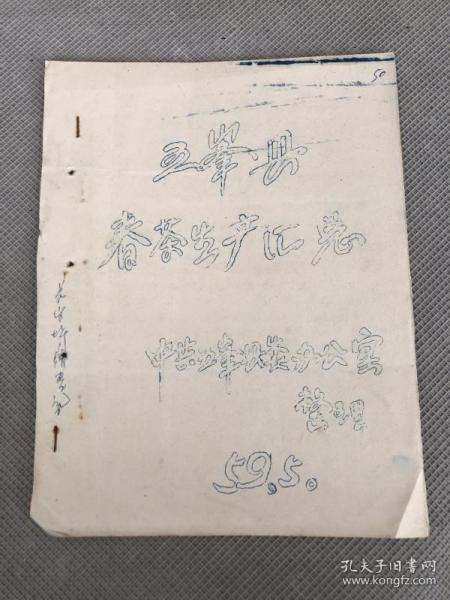 50
五峯县
春茶生产汇总
中共五峯县委办公室
整理
59.5.
孔夫子旧书网
www.kongfz.com